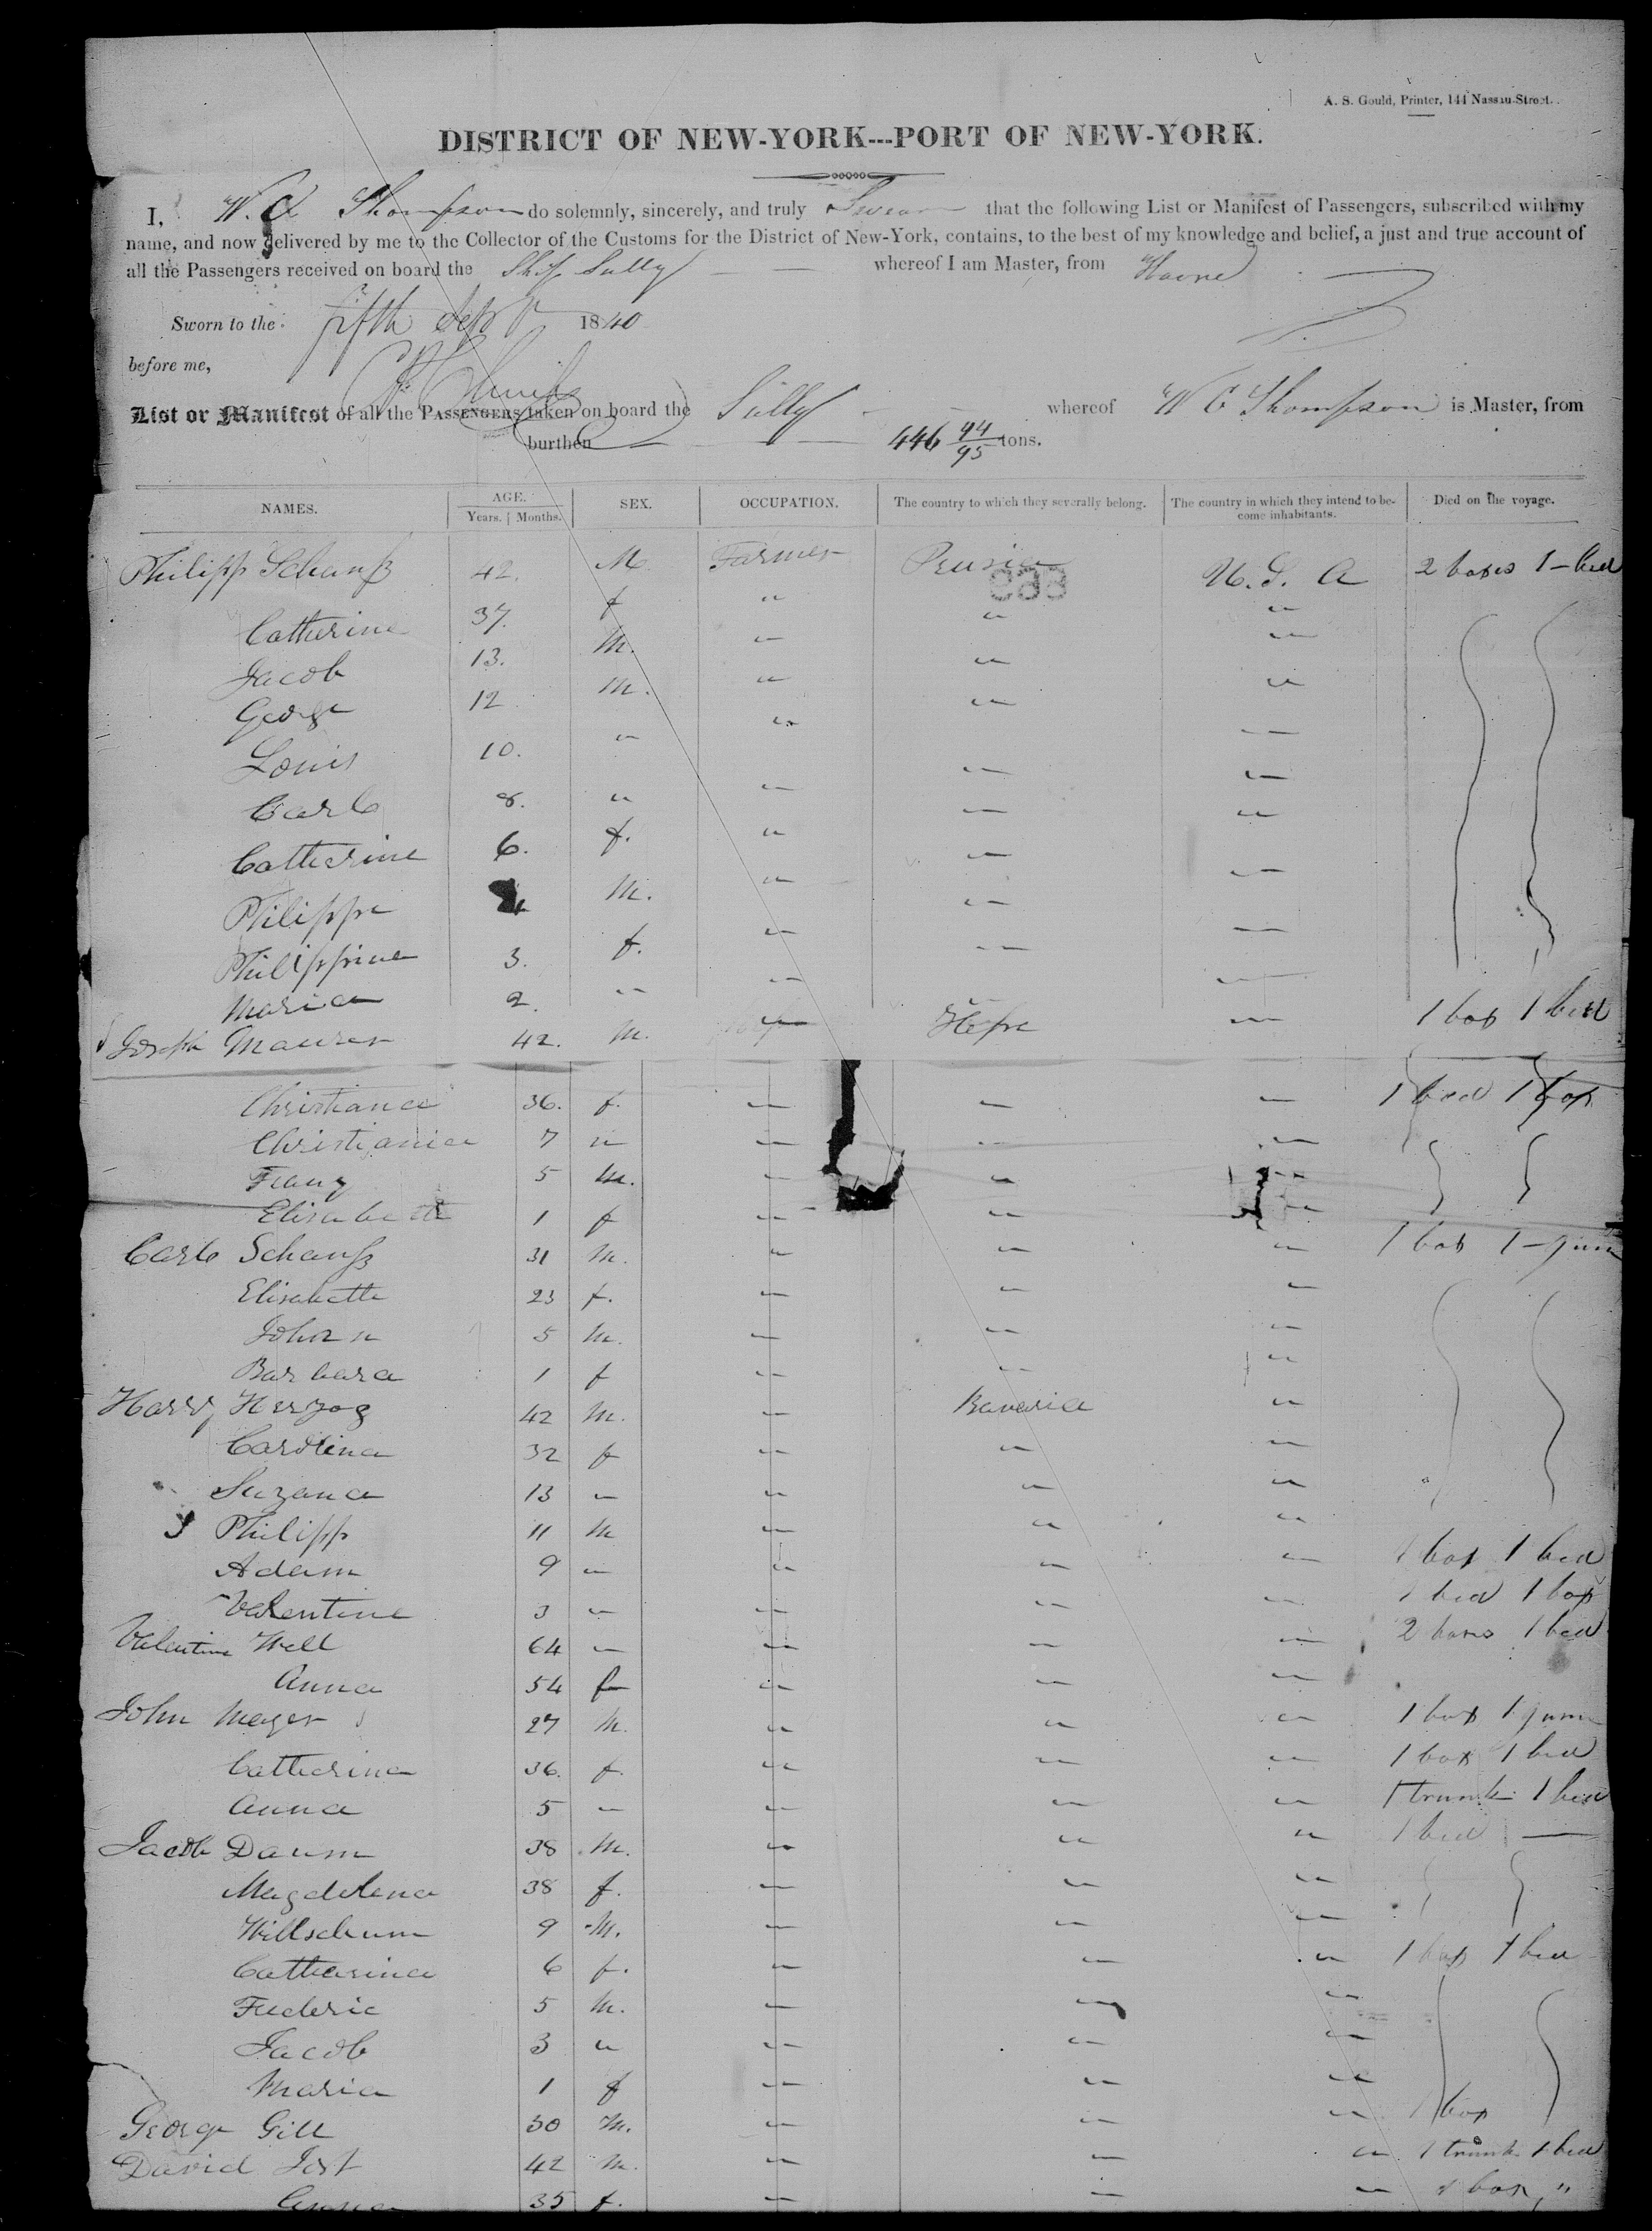 A. S. Gould, Printer, 144 Nassau-Street.
DISTRICT OF NEW-YORK---PORT OF NEW-YORK.
I, W. C Thompson do solemnly, sincerely, and truly Swear that the following List or Manifest of Passengers, subscribed with my
name, and now delivered by me to the Collector of the Customs for the District of New-York, contains, to the best of my knowledge and belief, a just and true account of
all the Passengers received on board the Ship Sully whereof I am Master, from Havre
Sworn to the fifth Sep 1840
before me,
List or Manifest of all the PASSENGERS taken on board the Sully whereof W C Thompson is Master, from
burthen 446 94/95 tons.
NAMES. AGE. Years. Months. SEX. OCCUPATION. The country to which they severally belong. The country in which they intend to become inhabitants. Died on the voyage.
Philipp Schauß 42. M. Farmer Prusia U. S. A 2 boxes 1 - bed
Catherine 37. f " " "
Jacob 13. M. " " "
George 12 M. " " "
Louis 10. " " " "
Carl 8. " " " "
Catherine 6. f. " " "
Philippe 4 M. " " "
Philippine 3. f. " " "
Maria 2. " " " "
Joseph Maurer 42. M. " Heße " 1 box 1 bed
Christiana 36. f. " " " 1 bed 1 box
Christiania 7 " " " "
Franz 5 M. " " "
Elisabeth 1 f " " "
Carl Schauß 31 M. " " " 1 box 1
Elisabetha 23 f. " " "
Johan 5 M. " " "
Barbara 1 f " " "
Herzog 42 M. " Bavaria "
Carolina 32 f " " "
Suzana 13 " " " "
Philipp 11 M " " "
Adam 9 " " " " 1 box 1 bed
Valentine 3 " " " " 1 bed 1 box
Valentine Well 64 " " " " 2 boxes 1 bed
Anna 54 f " " "
John Mayer 27 M. " " " 1 box 1
Catherina 36. f. " " " 1 box 1 bed
Anna 5 " " " " 1 trunk 1 bed
Jacob Daum 38 M. " " " 1 bed
Magdelena 38 f. " " "
9 M. " " "
Catharina 6 f. " " " 1 box 1 bed
Frederic 5 M. " " "
Jacob 3 " " " "
Maria 1 f " " "
George Gill 30 M. " " " 1 box
David Jost 42 M. " " " 1 trunk 1 bed
Anna 35 f. " " " 1 box "